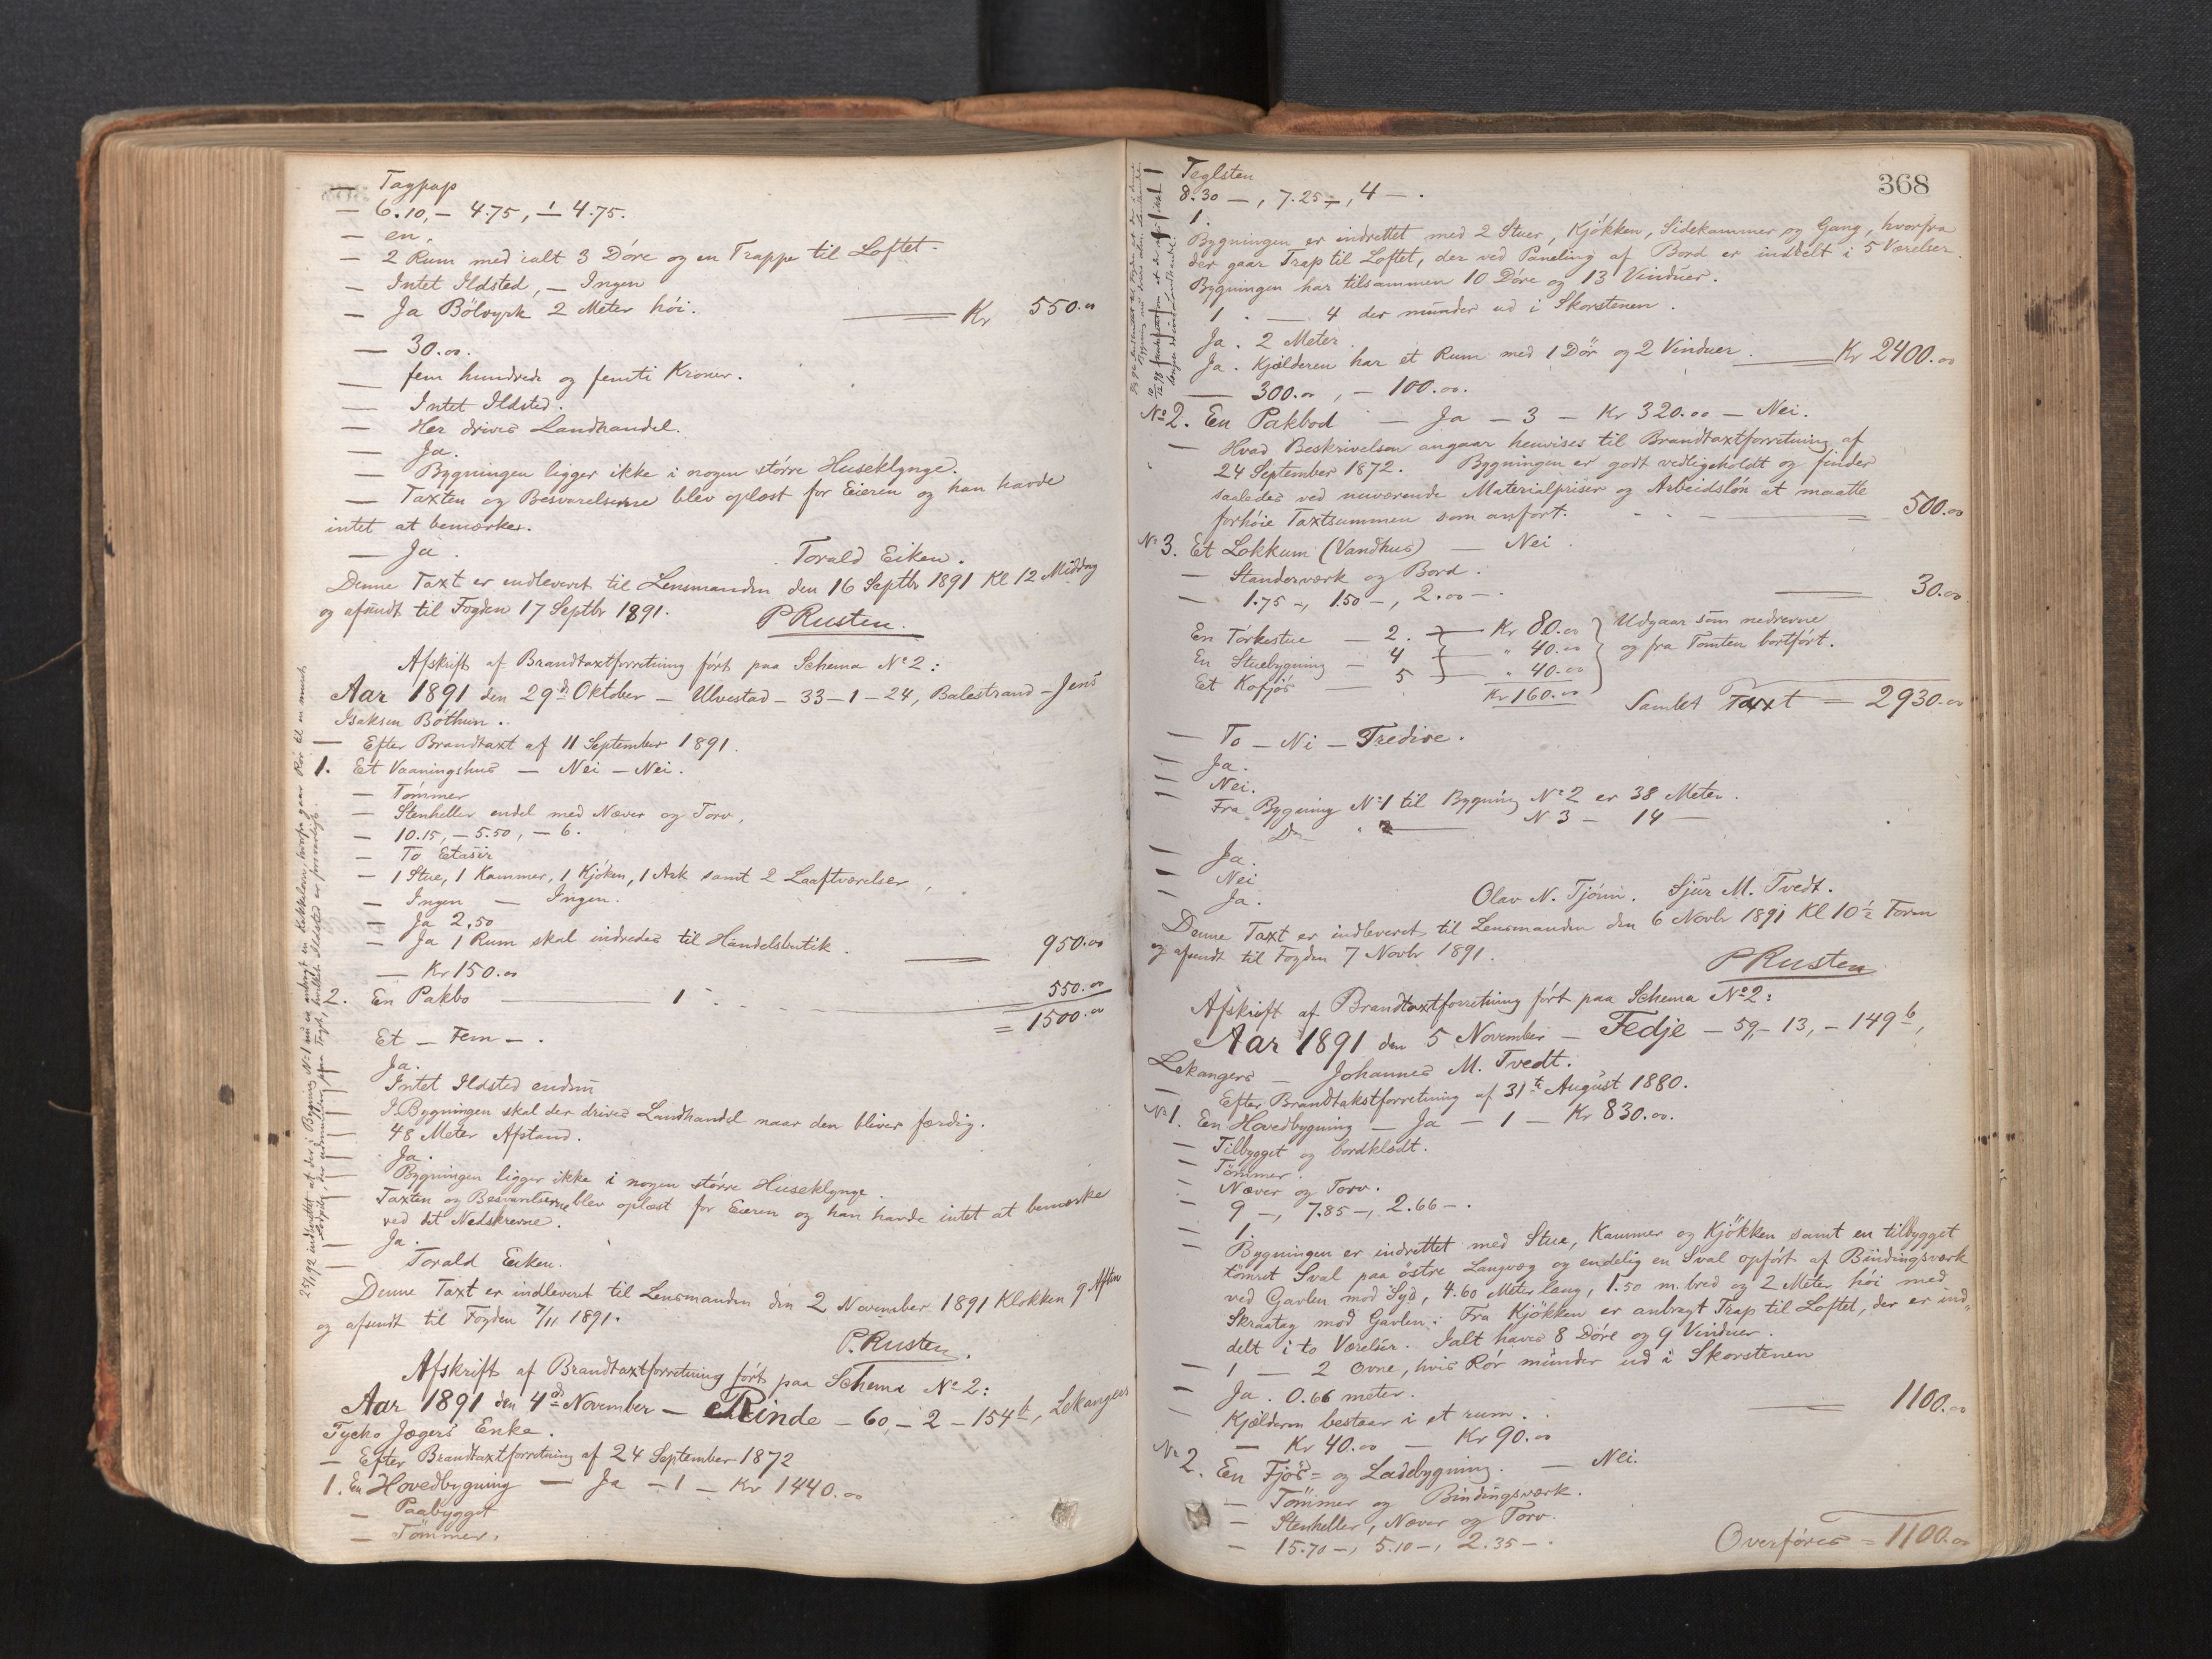 — Tagpap
— 6.10, — 4.75, — 4.75.
— en.
— 2 Rum med ialt 3 Döre og en Trappe til Loftet.
— Intet Ildsted, — Ingen
— Ja Bölvyrk 2 Meter höi. — Kr 550.00
— 30.00.
— fem hundrede og femti Kroner.
— Intet Ildsted.
— Her drives Landhandel.
— Ja.
— Bygningen ligger ikke i nogen större Huseklynge.
— Taxten og Besvarelserne blev oplæst for Eieren og han havde
intet at bemærke.
— Ja.
Torald Eiken.
Denne Taxt er indleveret til Lensmanden den 16 Septbr 1891 Kl 12 Middag
og afsendt til Fogden 17 Septbr 1891.
P Rusten.
Afskrift af Brandtaxtforretning fört paa Schema No 2:
Aar 1891 den 29d Oktober — Ulvestad — 33 — 1 — 24, Balestrand — Jens
Isaksen Böthun.
— Efter Brandtaxt af 11 September 1891.
1. Et Vaaningshus — Nei — Nei.
— Tömmer
— Stenheller endel med Næver og Torv,
— 10.15, — 5.50, — 6.
— To Etasir
— 1 Stue, 1 Kammer, 1 Kjöken, 1 Ark samt 2 Laaftværelser,
— Ingen — Ingen.
— Ja 2,50
— Ja 1 Rum skal indredes til Handelsbutik. — 950.00
— Kr 150.00
2. En Pakbo — 1 — 550.00
= 1500.00
Et — Fem —.
Ja.
Intet Ildsted endnu
I Bygningen skal der drives Landhandel naar den bliver færdig.
48 Meter Afstand.
Ja.
Bygningen ligger ikke i nogen större Huseklynge.
Taxten og Besvarelserne blev oplæst for Eieren og han havde intet at bemærke
ved det Nedskrevne.
Ja.
Torald Eiken.
Denne Taxt er indleveret til Lensmanden den 2 November 1891 Klokken 9 Aften
og afsendt til Fogden 7/11 1891.
P. Rusten.
Afskrift af Brandtaxtforretning fört paa Schema No 2:
Aar 1891 den 4de November — Rinde — 60, — 2 — 154b, Lekangers
Tycho Jægers Enke.
— Efter Brandtaxtforretning af 24 September 1872
1. En Hovedbygning — Ja — 1 — Kr 1440.00
— Paabygget
— Tömmer.
368
Teglsten
8.30 —, 7.25 —, 4 —.
1.
Bygningen er indrettet med 2 Stuer, Kjökken, Sidekammer og Gang, hvorfra
der gaar Trap til Loftet, der ved Paneling af Bord er inddelt i 5 Værelser.
Bygningen har tilsammen 10 Döre og 13 Vinduer.
1. — 4 der munder ud i Skorstenen.
Ja. 2 Meter.
Ja. Kjælderen har et Rum med 1 Dör og 2 Vinduer. — Kr 2400.00
— 300.00, — 100.00.
No 2. En Pakbod — Ja — 3 — Kr 320.00 — Nei.
— Hvad Beskrivelsen angaar henvises til Brandtaxtforretning af
24 September 1872. Bygningen er godt vedligeholdt og findes
saaledes ved nuværende Materialpriser og Arbeidslön at maatte
forhöie Taxtsummen som anfört. — 500.00
No 3. Et Lokkum (Vandhus) — Nei
— Standerværk og Bord.
— 1.75 —, 1.50 —, 2.00 —. — 30.00
En Törkestue — 2. — Kr 80.00 } Udgaar som nedrevne
En Stuebygning — 4 — " 40.00 og fra Tomten bortfört.
Et Kofjös — 5 — " 40.00
Kr 160.00
Samlet Taxt = 2930.00
— To — Ni — Tredive.
Ja.
Nei.
Fra Bygning No 1 til Bygning No 2 er 38 Meter.
Do " — N 3 — 14 —
Ja.
Nei
Ja.
Olav N. Tjönn. Sjur M. Tvedt.
Denne Taxt er indleveret til Lensmanden den 6 Novbr 1891 Kl 10½ Form
og afsendt til Fogden 7 Novbr 1891.
P Rusten
Afskrift af Brandtaxtforretning fört paa Schema No 2:
Aar 1891 den 5 November — Fedje — 59, — 13, — 149b,
Lekangers — Johannes M. Tvedt.
— Efter Brandtakstforretning af 31te August 1880.
No 1. En Hovedbygning — Ja — 1 — Kr 830.00.
— Tilbygget og bordklædt.
— Tömmer.
— Næver og Torv.
— 9 —, 7.85 —, 2.66 —.
— 1.
— Bygningen er indrettet med Stue, Kammer og Kjökken samt en tilbygget
tömret Sval paa östre Langvæg og endelig en Sval opfört af Bindingsværk
ved Gavlen mod Syd, 4.60 Meter lang, 1.50 m. bred og 2 Meter höi med
Skraatag mod Gavlen. Fra Kjökken er anbragt Trap til Loftet, der er ind-
delt i to Værelser. Ialt haves 8 Döre og 9 Vinduer.
— 1 — 2 Ovne, hvis Rör munder ud i Skorstenen
— Ja. 0.66 meter.
Kjælderen bestaar i et rum. — 1100.00
— Kr 40.00 — Kr 90.00
No 2. En Fjös- og Ladebygning. — Nei.
— Tömmer og Bindingsværk.
— Stenheller, Næver og Torv.
— 15.70 —, 5.10 —, 2.35 —.
Overföres = 1100.00